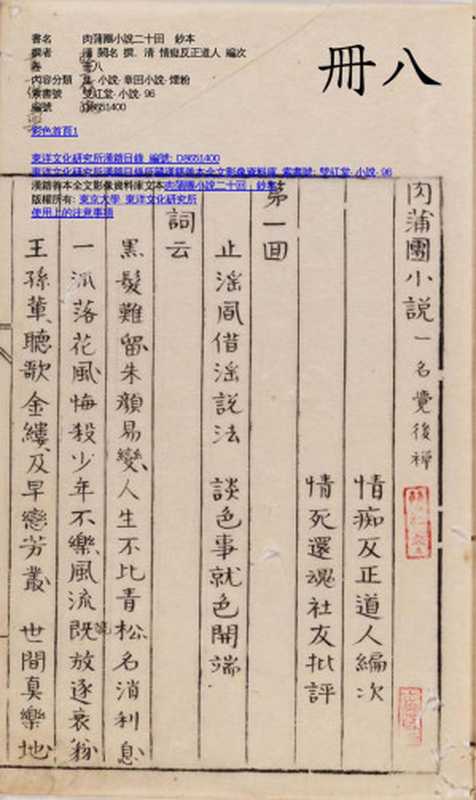 書名 肉蒲團小說二十回 鈔本
撰者 清 闕名 撰。清 情癡反正道人 編次
卷
内容分類 集·小說·章回小說·煙粉
索書號 雙紅堂·小說·96
編號 D8651400
彩色首頁1
東洋文化研究所漢籍目錄 編號: D8651400
東洋文化研究所漢籍目錄所藏漢籍善本全文影像資料庫 索書號: 雙紅堂·小說·96
漢籍善本全文影像資料庫文本肉蒲團小說二十回,鈔本
版權所有: 東京大學 東洋文化研究所
使用上的注意事項
八冊
肉蒲團小說 一名覺後禪
情痴反正道人編次
情死還魂社友批評
第一回
止滛風借滛說法 談色事就色開端
詞云
黑髮難留朱顏易變人生不比青松名消利息
一派落花風悔殺少年不樂風流院放逐衰翁
王孫輩聽歌金縷及早戀芳叢 世間真樂地